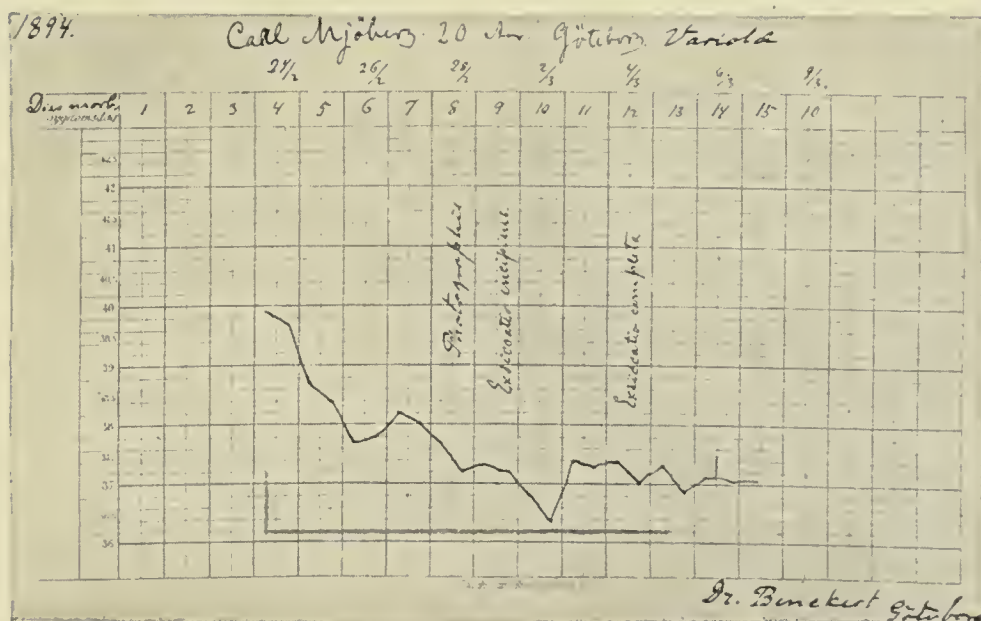 1894.
Carl Mjöberg. 20 År. Göteborg. Variola
24/2 26/2 28/2 2/3 4/3 6/3 8/3.
Dies morbi 1 2 3 4 5 6 7 8 9 10 11 12 13 14 15 10
42
41
40
39
38
37
36
Photographis
Exsiccatio incipiens.
Exsiccatio completa
Dr. Benckert Göteborg